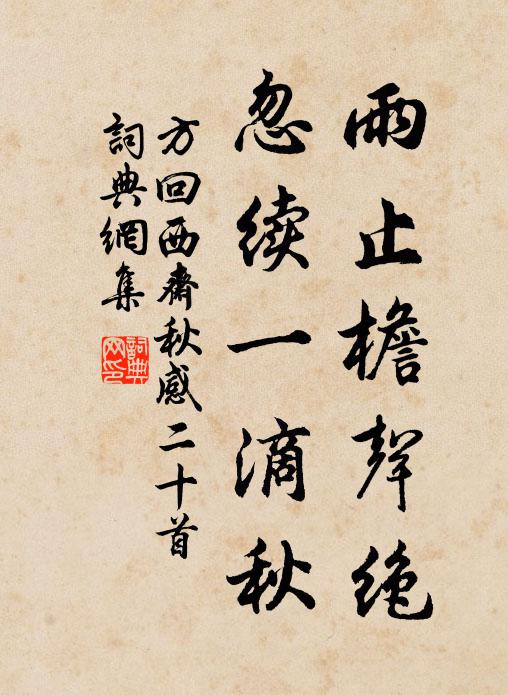 雨止檐聲绝
忽续一滴秋
方回西齋秋感二十首
詞典網集
詞典網印